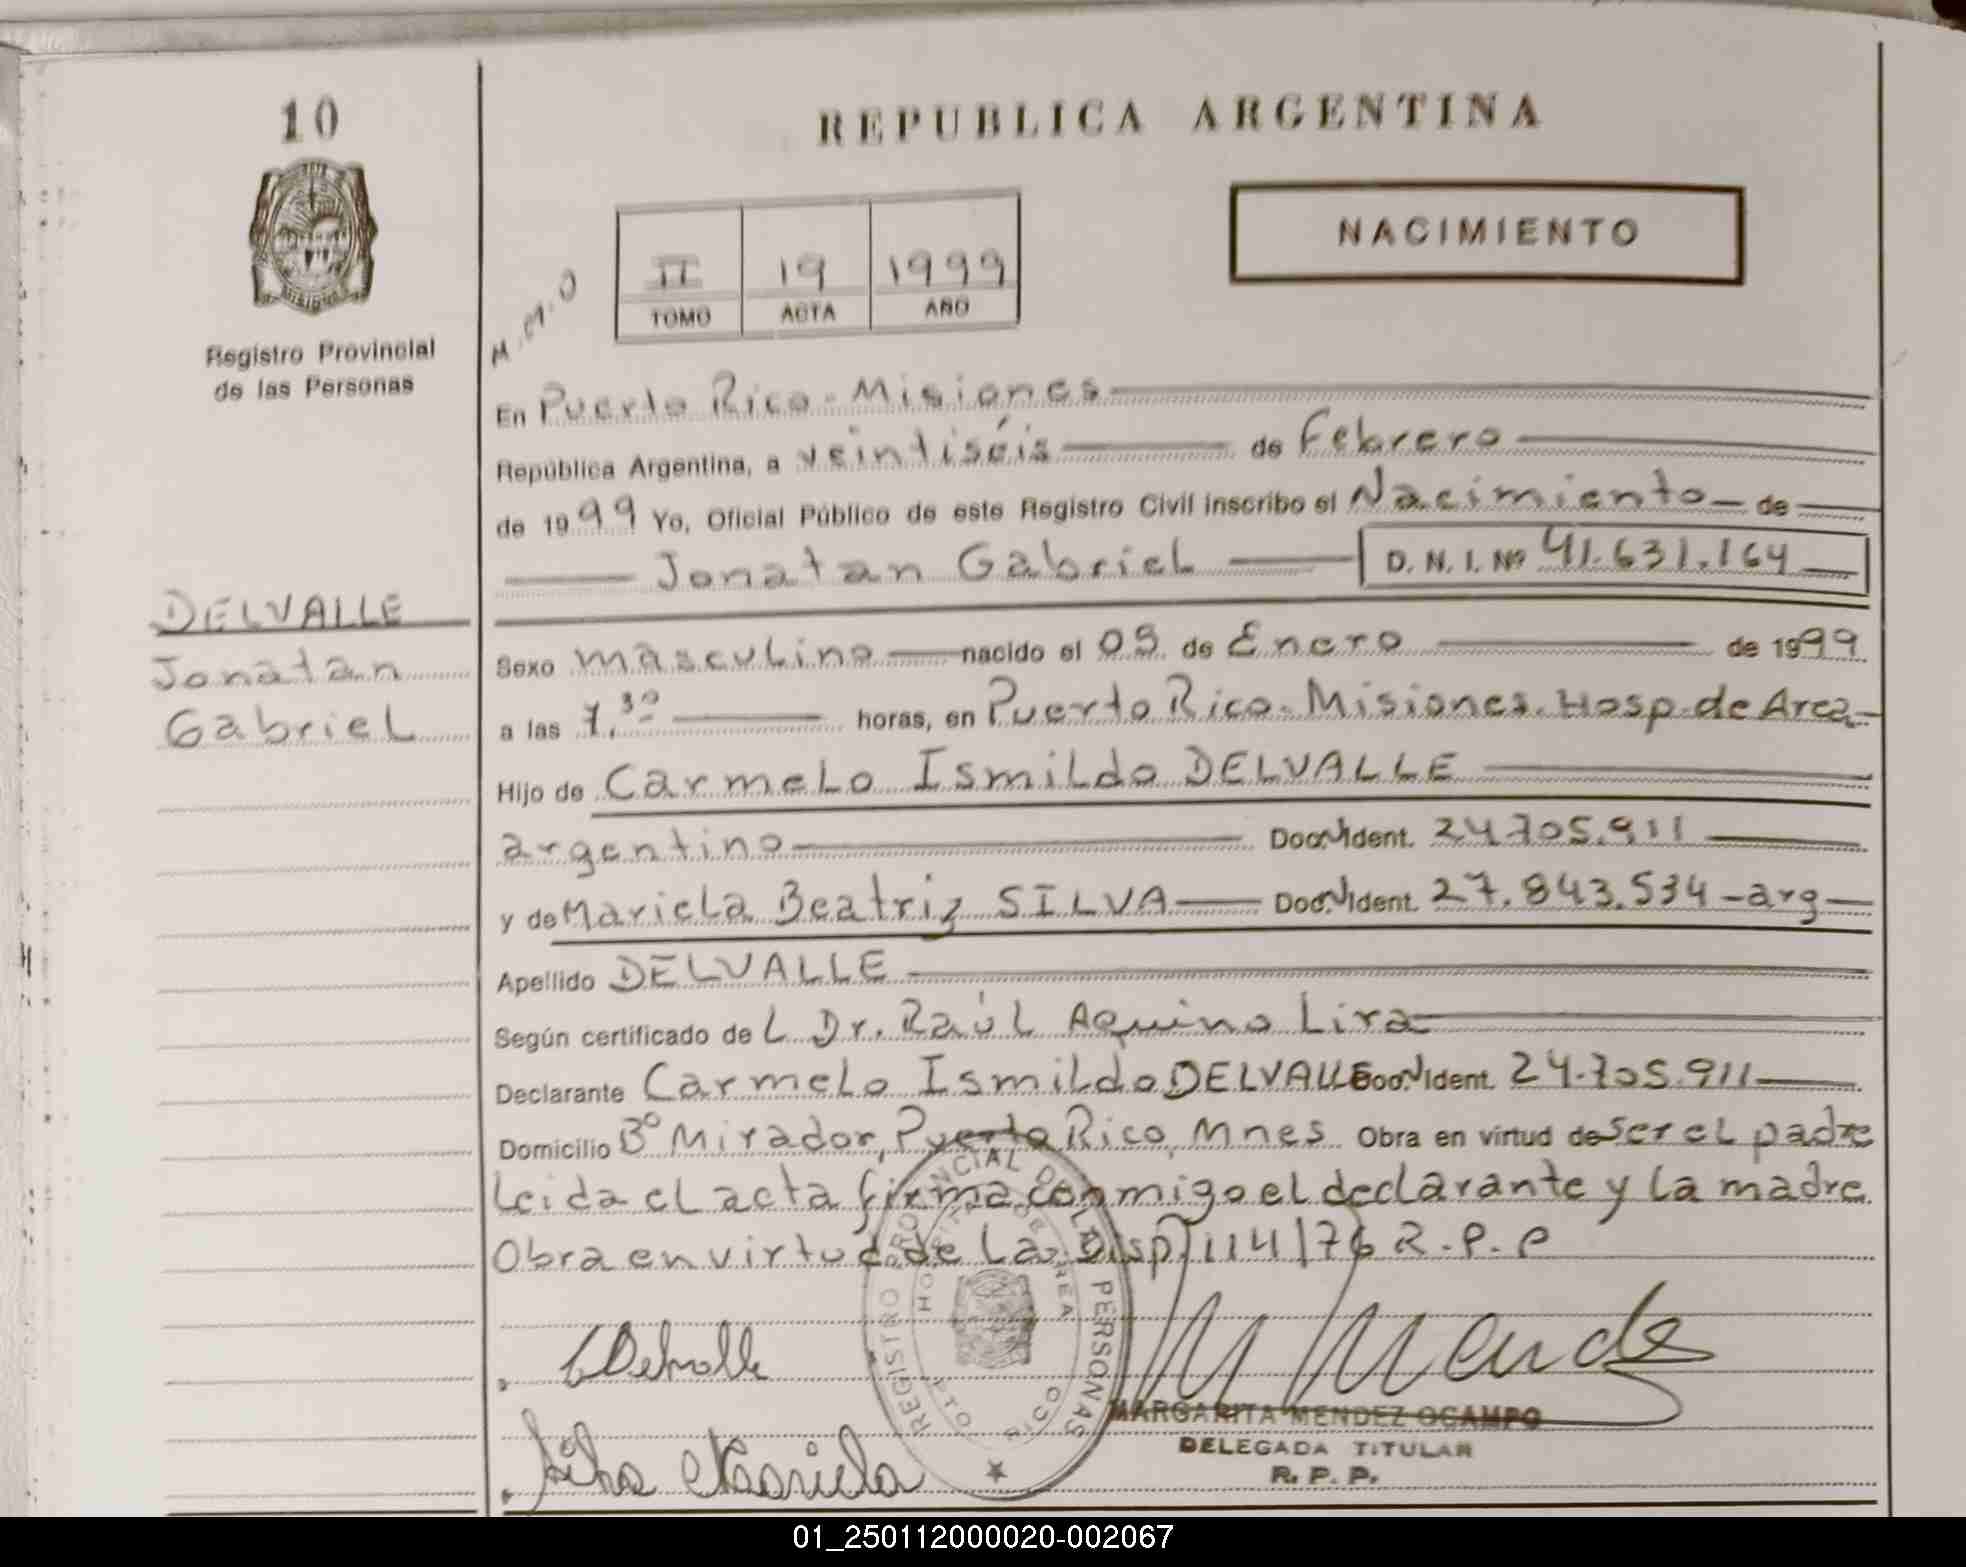 10
REPUBLICA ARGENTINA
NACIMIENTO
II 19 1999
TOMO ACTA AÑO
M.M.O
Registro Provincial
de las Personas
En Puerto Rico - Misiones
República Argentina, a veintiséis de Febrero
de 1999 Yo, Oficial Público de este Registro Civil inscribo el Nacimiento de
Jonatan Gabriel D. N. I. Nº 41.631.164
DELVALLE
Jonatan
Gabriel
Sexo masculino nacido el 09 de Enero de 1999
a las 7,30 horas, en Puerto Rico - Misiones. Hosp. de Area
Hijo de Carmelo Ismildo DELVALLE
argentino Doc. Ident. 24.705.911
y de Mariela Beatriz SILVA Doc. Ident. 27.843.534 - arg
Apellido DELVALLE
Según certificado de L Dr. Raúl Aquino Lira
Declarante Carmelo Ismildo DELVALLE Doc. Ident. 24.705.911
Domicilio Bº Mirador, Puerto Rico, Mnes Obra en virtud de ser el padre
Leida el acta firma conmigo el declarante y la madre.
Obra en virtud de la Disp. 114/76 R.P.P
REGISTRO PROVINCIAL DE LAS PERSONAS
C Delvalle
M Mendez
MARGARITA MENDEZ OCAMPO
DELEGADA TITULAR
R. P. P.
Silva Mariela
01_250112000020-002067